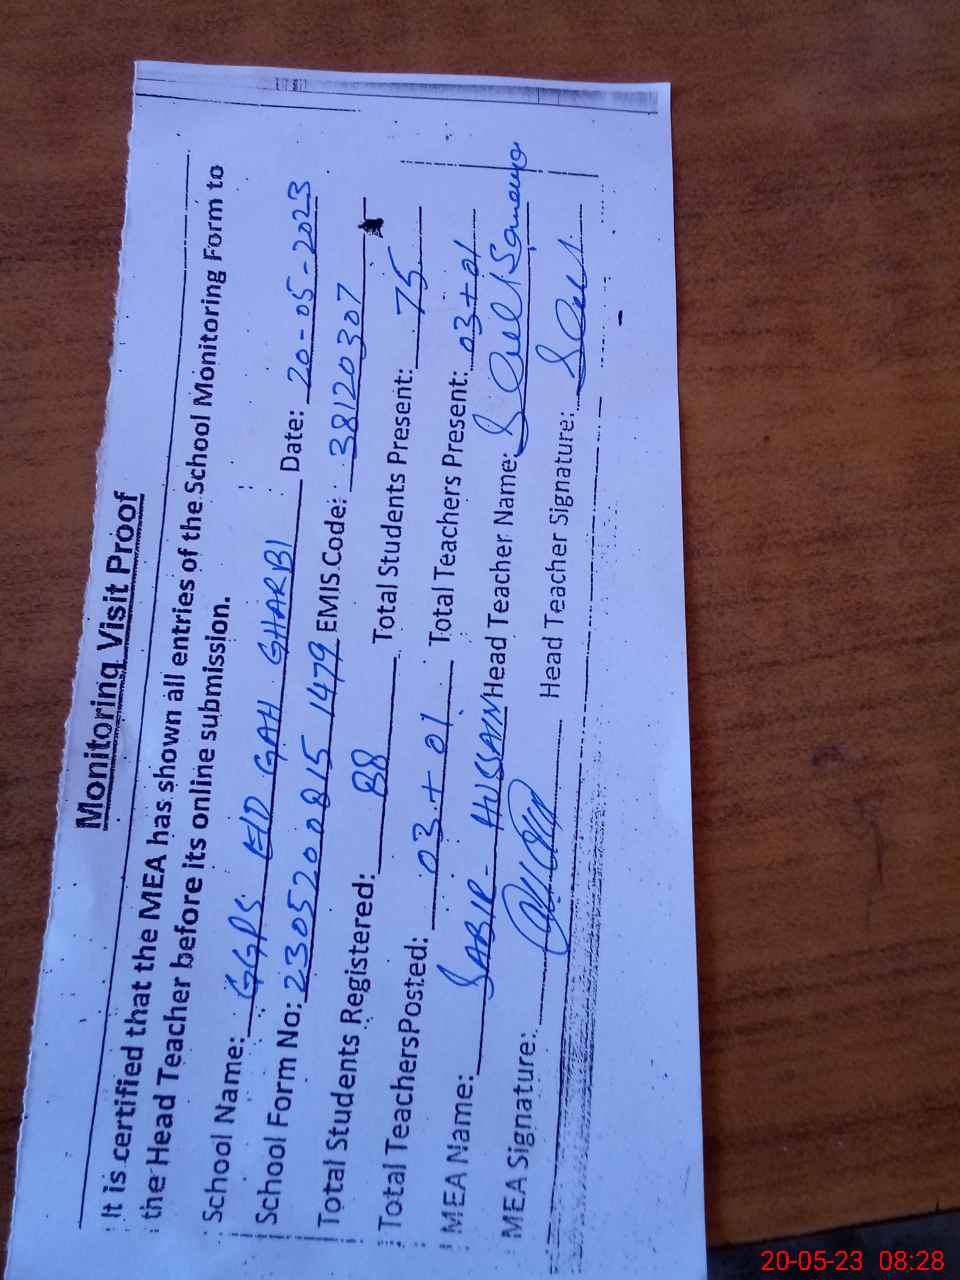 Monitoring Visit Proof
It is certified that the MEA has shown all entries of the School Monitoring Form to
the Head Teacher before its online submission.
School Name: GGPS EID GAH GHARBI Date: 20-05-2023
School Form No: 230520 0815 1479 EMIS Code: 38120307
Total Students Registered: 88 Total Students Present: 75
Total Teachers Posted: 03 + 01 Total Teachers Present: 03 + 01
MEA Name: SABIR - HUSSAIN Head Teacher Name:
MEA Signature: Head Teacher Signature:
20-05-23 08:28